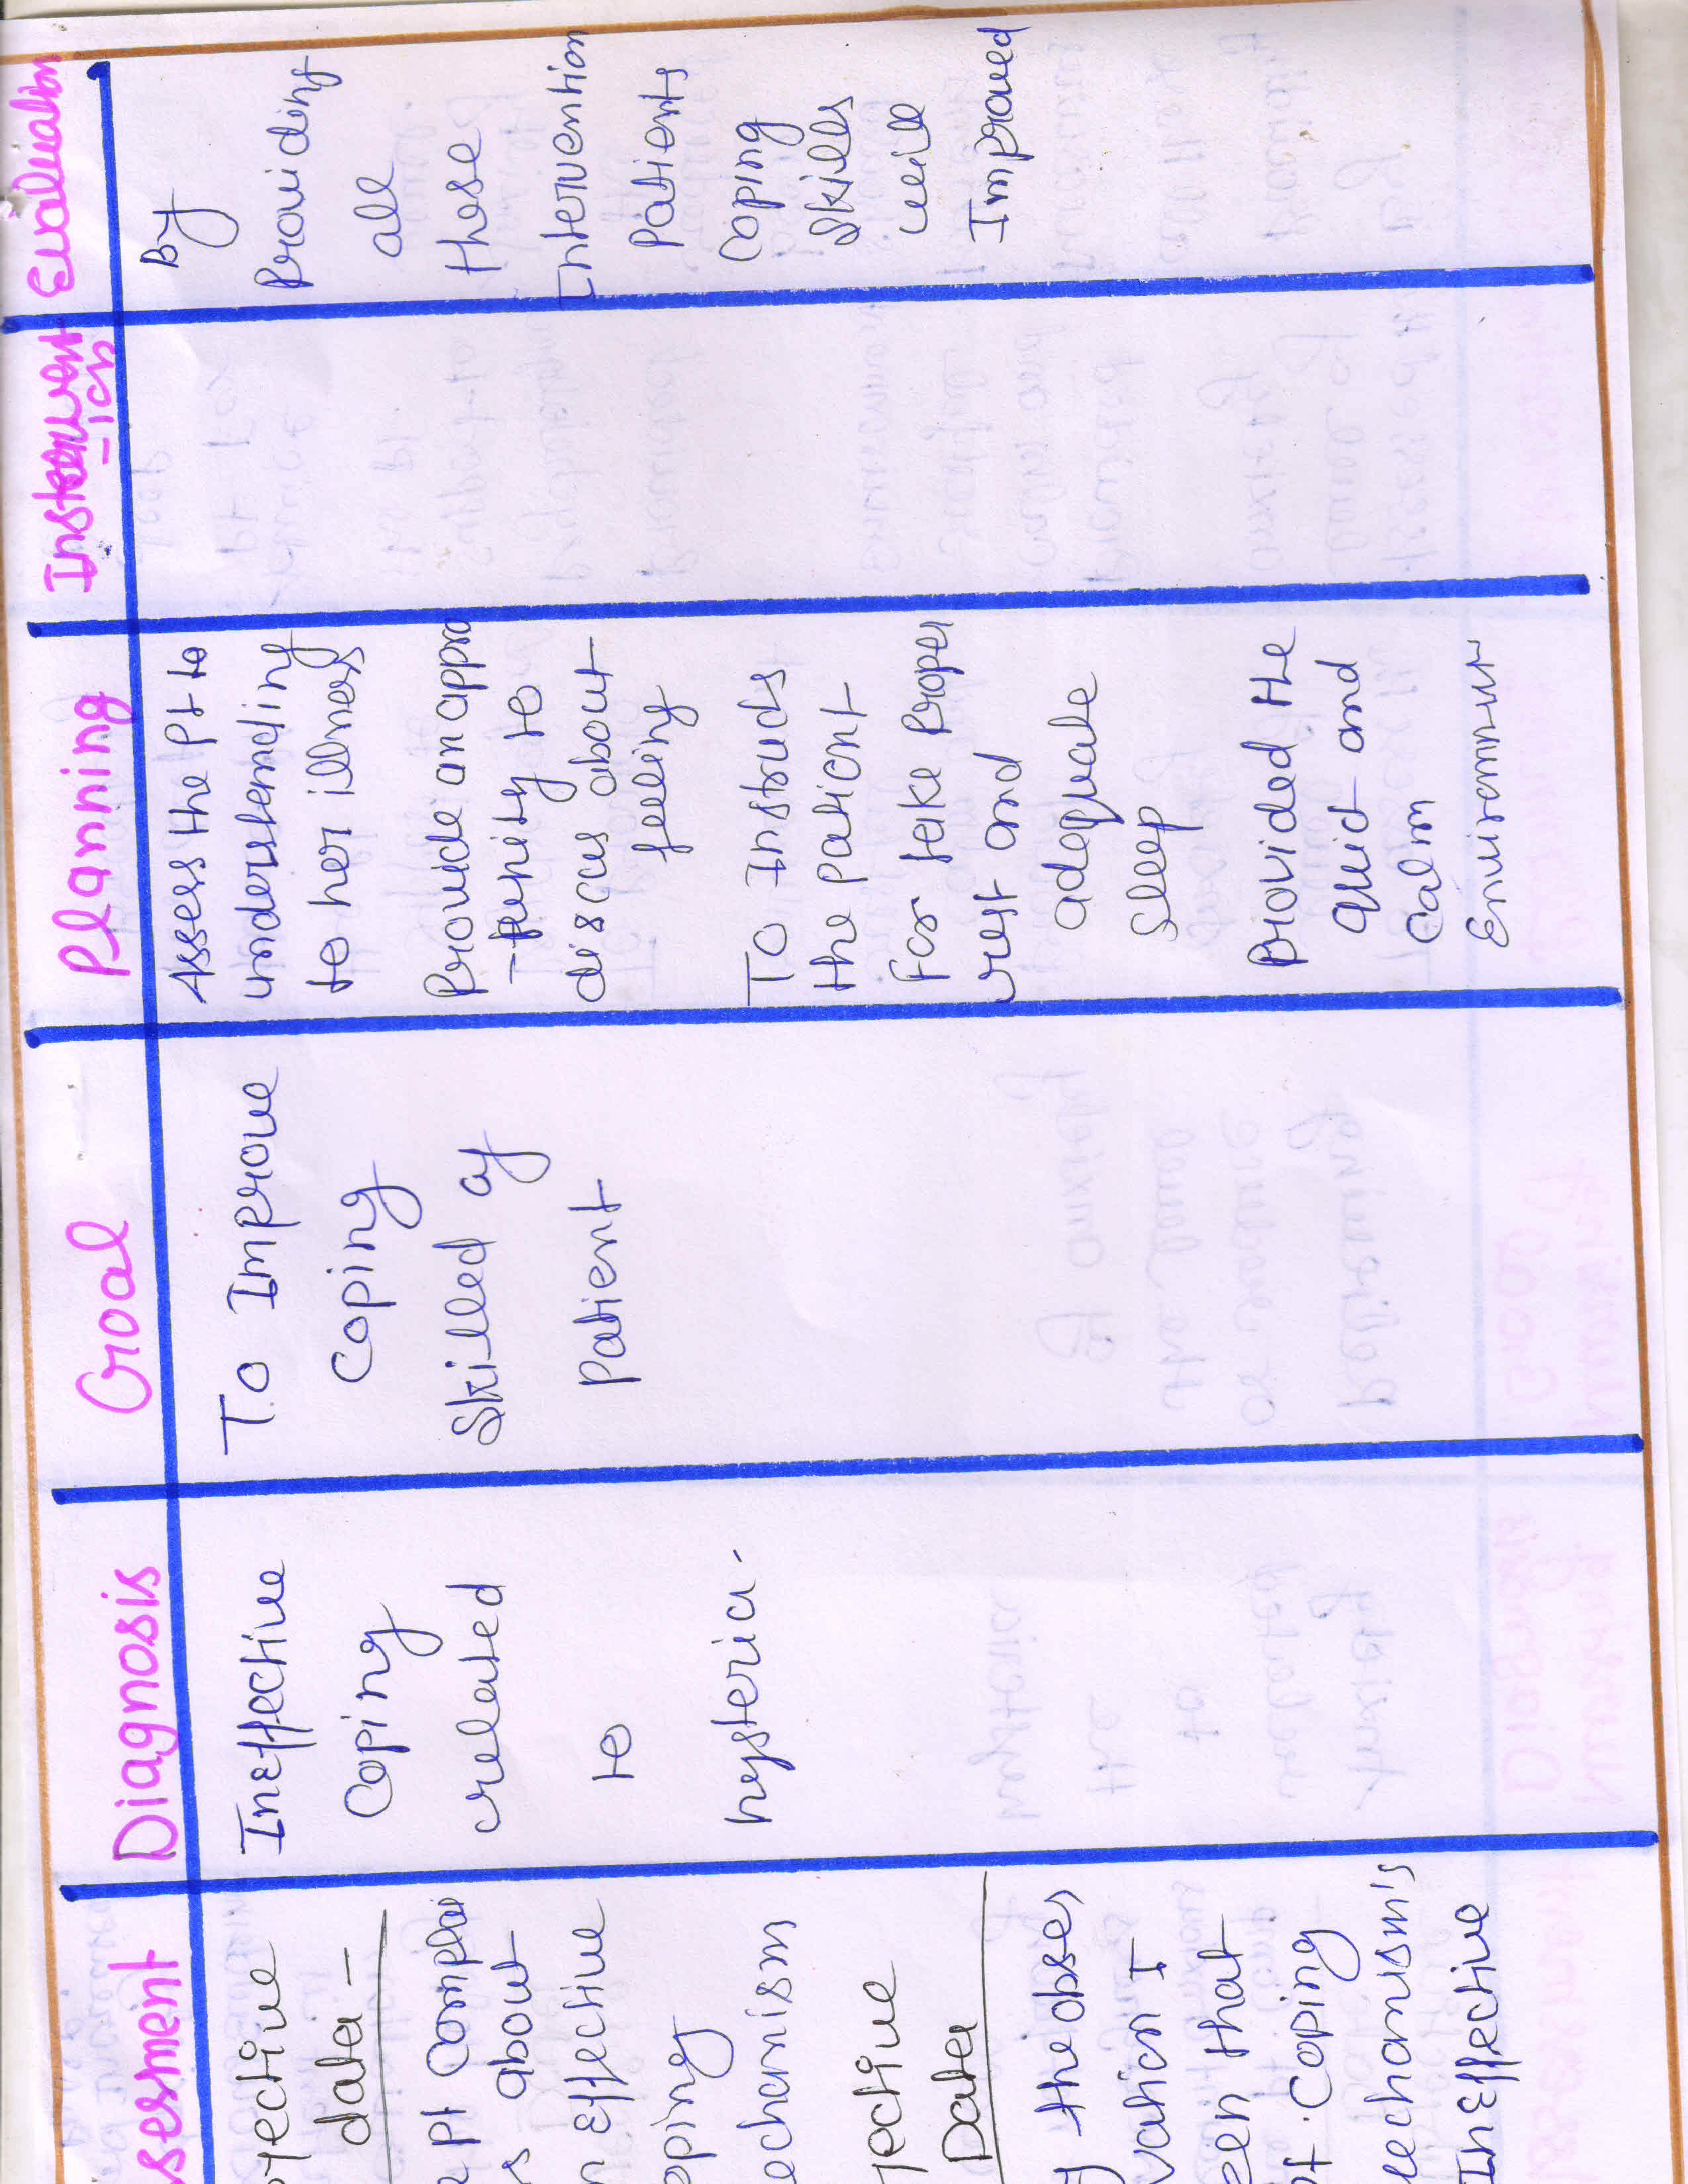 sesment
jective
data -
pt Complai
s about
n Effective
oping
echanism
jective
Data
y the obser
vation I
een that
pt. Coping
mechanism's
InEffective
Diagnosis
InEffective
Coping
related
to
hysteria.
Goal
To Improve
Coping
Skilled of
patient
Planning
Assess the pt to
understending
to her illness
Provide an appro
-tunity to
discus about
feeling
To Instruds
the patient
For take Proper
rest and
adequate
Sleep
Provided the
Quid and
Calm
Evaluation
By
Providing
all
these
Intervention
Patients
Coping
Skills
will
Improved